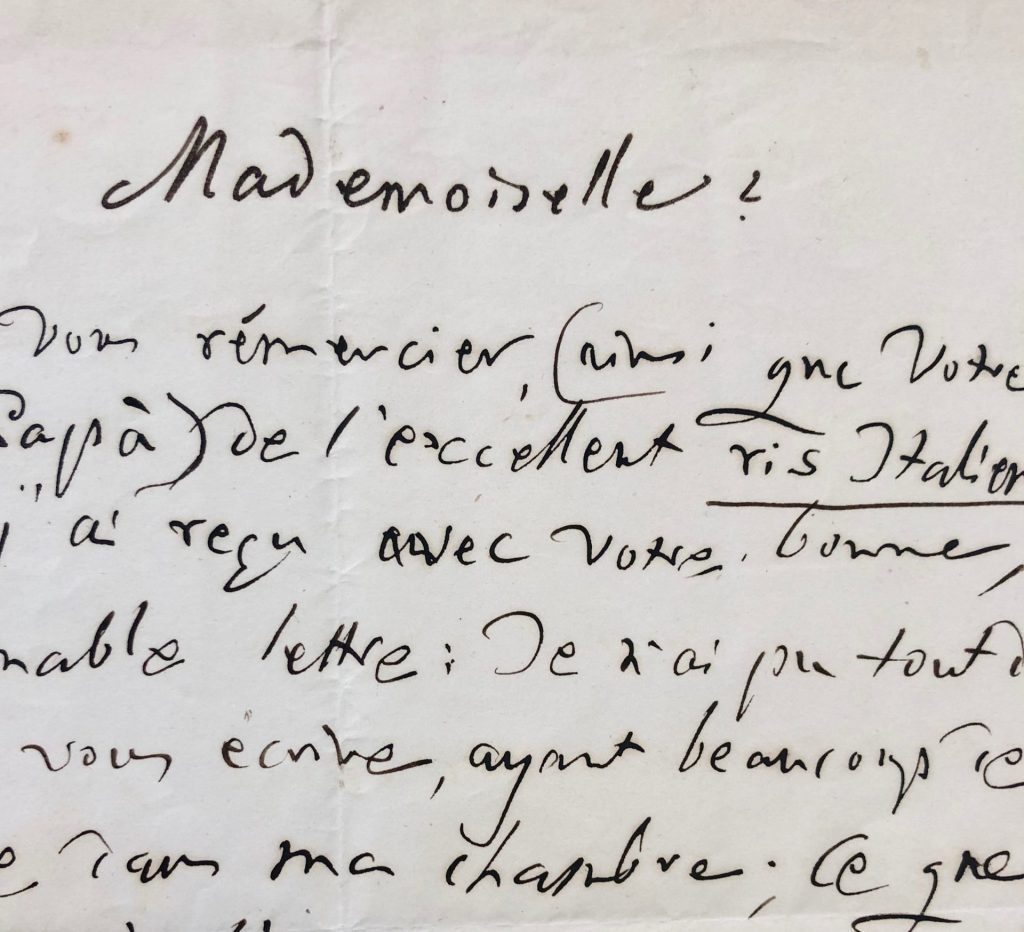 Mademoiselle?
vous rémercier, (ainsi que Votre
Papà) de l'excellent ris Italien
j'ai reçu avec votre bonne,
mable lettre: Je n'ai pu tout d
vous écrire, ayant beaucoup de
e dans ma chambre; Ce que